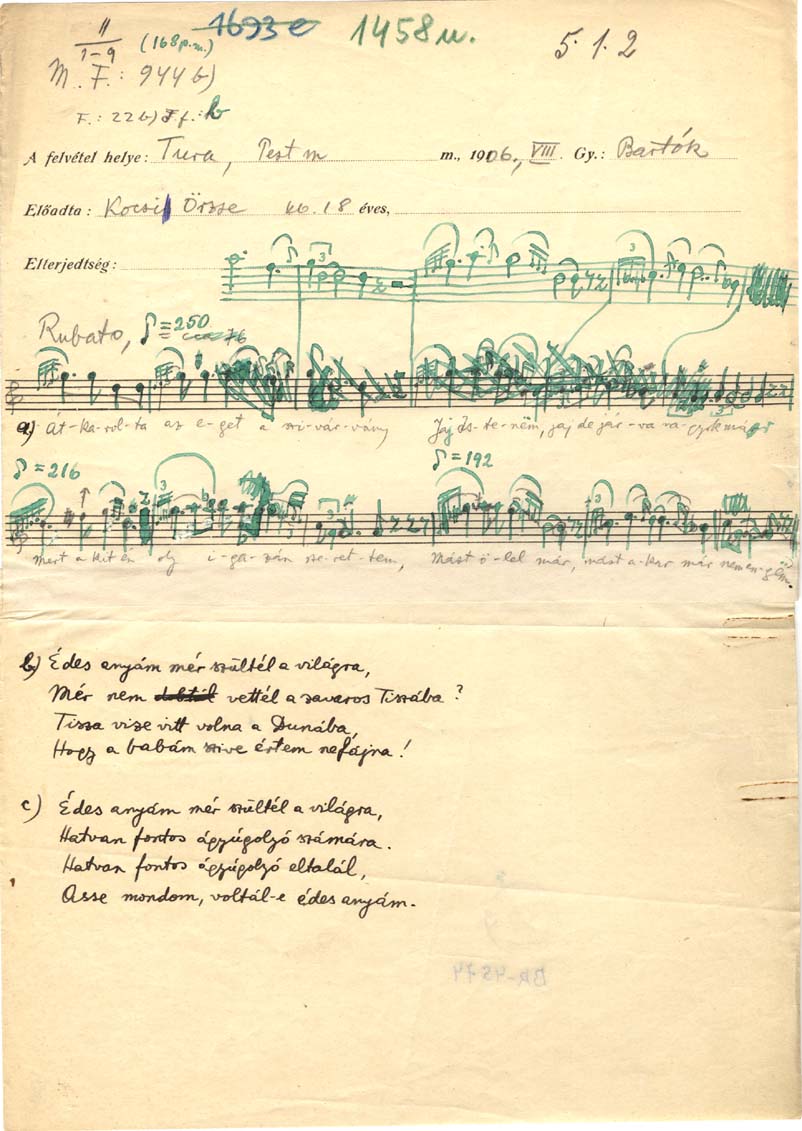 11 / 1-9 (168 p.m.) 1693 e 1458 u. 5. 1. 2
M. F.: 944 b)
F.: 22 b)
A felvétel helye: Tura, Pest m m., 1906, VIII. Gy.: Bartók
Előadta: Kocsi Örzse 18 éves,
Elterjedtség:
Rubato, ♪ = 250
a) Át-ka-rol-ta az e-get a szi-vár-vány Jaj Is-te-nem, jaj de jár-va va-gyok már
♪ = 216 ♪ = 192
mert a kit én oly i-ga-zán sze-ret-tem, Mást ö-lel már, mást a-kar már nem en-gem.
b) Édes anyám mér szültél a világra,
Mér nem dobtál vettél a zavaros Tiszába?
Tisza vize vitt volna a Dunába,
Hogy a babám szive értem nefájna!
c) Édes anyám mér szültél a világra,
Hatvan fontos ágyúgolyó számára.
Hatvan fontos ágyúgolyó eltalál,
Asse mondom, voltál-e édes anyám.